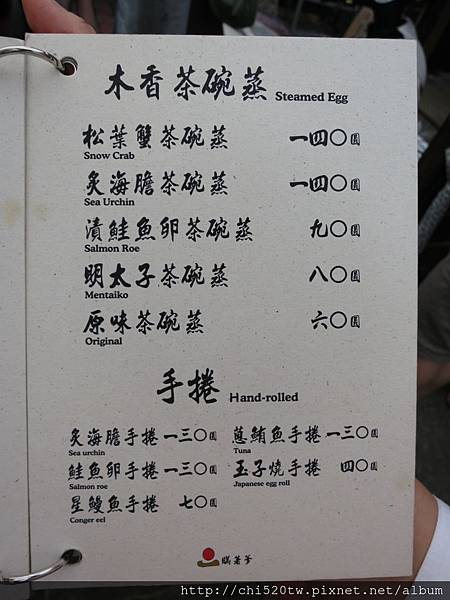 木香茶碗蒸 Steamed Egg
松葉蟹茶碗蒸 一四〇圓
Snow Crab
炙海膽茶碗蒸 一四〇圓
Sea Urchin
漬鮭魚卵茶碗蒸 九〇圓
Salmon Roe
明太子茶碗蒸 八〇圓
Mentaiko
原味茶碗蒸 六〇圓
Original
手捲 Hand-rolled
炙海膽手捲 一三〇圓 蔥鮪魚手捲 一三〇圓
Sea urchin Tuna
鮭魚卵手捲 一三〇圓 玉子燒手捲 四〇圓
Salmon roe Japanese egg roll
星鰻魚手捲 七〇圓
Conger eel
http://chi520tw.pixnet.net/album